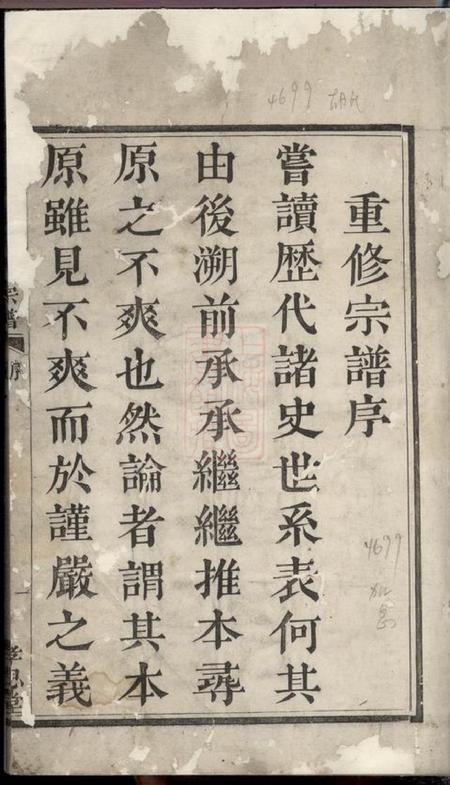 重修宗譜序
嘗讀歷代諸史世系表何其
由後溯前承承繼繼推本尋
原之不爽也然論者謂其本
原雖見不爽而於謹嚴之義
宗譜
序
孝思堂
4699 胡氏
4699